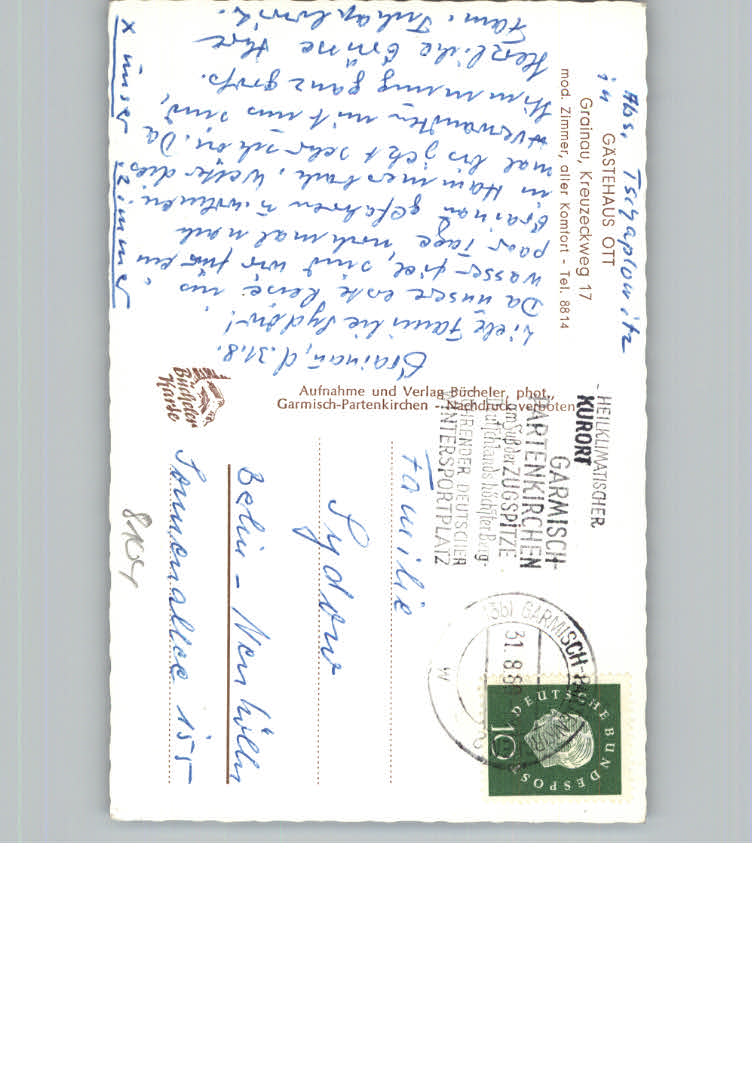 Abs. Tschaplowitz
in
GÄSTEHAUS OTT
Grainau, Kreuzeckweg 17
mod. Zimmer, aller Komfort - Tel. 8814
Grainau, d. 31.8.
Liebe Familie Sydow!
Da unsere erste Reise ins
wasser fiel, sind wir für ein
paar Tage nochmal nach
Grainau gefahren u. wohnen
in Hammersbach. Wetter dies
mal bis jetzt sehr schön. Da
Verwandten mit uns sind,
Stimmung ganz groß.
Herzliche Grüße Ihre
Fam. Tschaplowitz.
x unser Zimmer
Aufnahme und Verlag Bücheler, phot.,
Garmisch-Partenkirchen - Nachdruck verboten
Bücheler
Karte
HEILKLIMATISCHER
KURORT
GARMISCH-
PARTENKIRCHEN
am Fuß der ZUGSPITZE
Deutschlands höchster Berg
FÜHRENDER DEUTSCHER
WINTERSPORTPLATZ
(13b) GARMISCH-PARTENKIRCHEN
31.8.60
DEUTSCHE BUNDESPOST
10
Familie
Sydow
Berlin - Neukölln
Sonnenallee 155